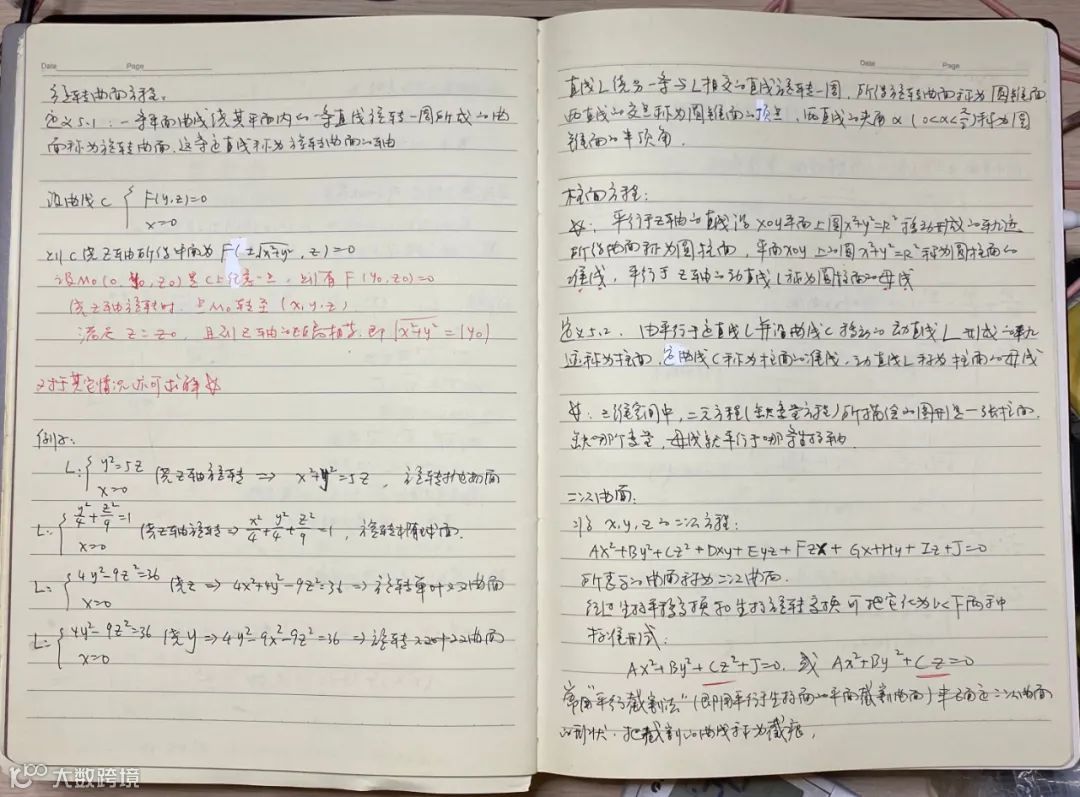 Date Page
旋转曲面方程。
定义5.1：一条平面曲线绕其平面内的一条直线旋转一周所成的曲
面称为旋转曲面，这条定直线称为旋转曲面的轴
设曲线C { F(y,z)=0
x=0
则C绕Z轴所得曲面为 F(±√x²+y², z)=0
设M₀(0, y₀, z₀)是C上任意一点，则有 F(y₀,z₀)=0
绕Z轴旋转时，点M₀转至(x,y,z)
满足 z=z₀，且到Z轴的距离相等，即 √x²+y²=|y₀|
对于其它情况亦可求解
例：
L: { y²=5z 绕Z轴旋转 ⇒ x²+y²=5z，旋转抛物面
x=0
L: { y²/4+z²/9=1 绕Z轴旋转 ⇒ x²/4+y²/4+z²/9=1，旋转椭球面.
x=0
L: { 4y²-9z²=36 绕z ⇒ 4x²+4y²-9z²=36 ⇒ 旋转单叶双曲面
x=0
L: { 4y²-9z²=36 绕y ⇒ 4y²-9x²-9z²=36 ⇒ 旋转双叶双曲面
x=0
Date Page
直线L绕另一条与L相交的直线旋转一周，所得旋转曲面称为圆锥面
两直线的交点称为圆锥面的顶点，两直线的夹角α(0<α<π/2)称为圆
锥面的半顶角.
柱面方程：
平行于Z轴的直线沿xoy平面上圆x²+y²=R²移动形成的轨迹
所得曲面称为圆柱面，平面xoy上的圆x²+y²=R²称为圆柱面的
准线，平行于Z轴的动直线L称为圆柱面的母线
定义5.2. 由平行于定直线L并沿曲线C移动的动直线L形成的轨
迹称为柱面，定曲线C称为柱面的准线，动直线L称为柱面的母线
三维空间中，二元方程(缺变量方程)所描绘的图形是一张柱面，
缺哪个变量，母线就平行于哪条坐标轴.
二次曲面.
x,y,z的二次方程：
Ax²+By²+Cz²+Dxy+Eyz+Fzx+Gx+Hy+Iz+J=0
所表示的曲面称为二次曲面.
经过坐标平移变换和坐标旋转变换可把它化为以下两种
标准形式：
Ax²+By²+Cz²+J=0. 或 Ax²+By²+Cz=0
常用"平行截割法"(即用平行于坐标面的平面截割曲面)来确定二次曲面
的形状. 把截割的曲线称为截痕.
大数跨境